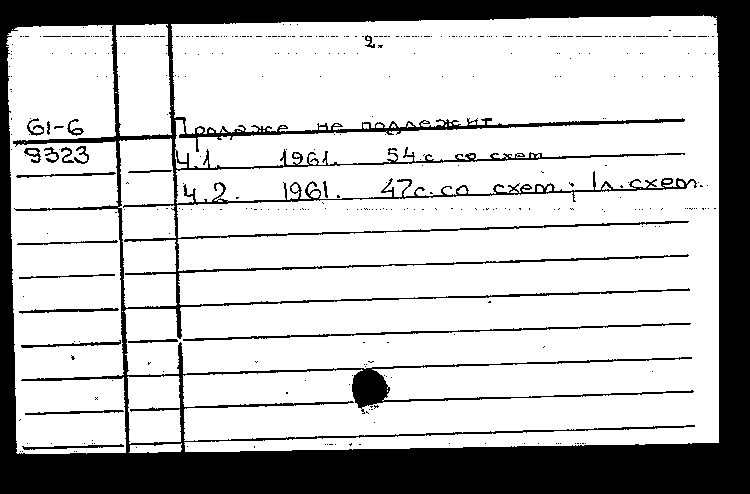 2.
61-6 Продаже не подлежит.
9323 Ч.1. 1961. 54 с. со схем.
Ч.2. 1961. 47с. со схем.; 1 л. схем.